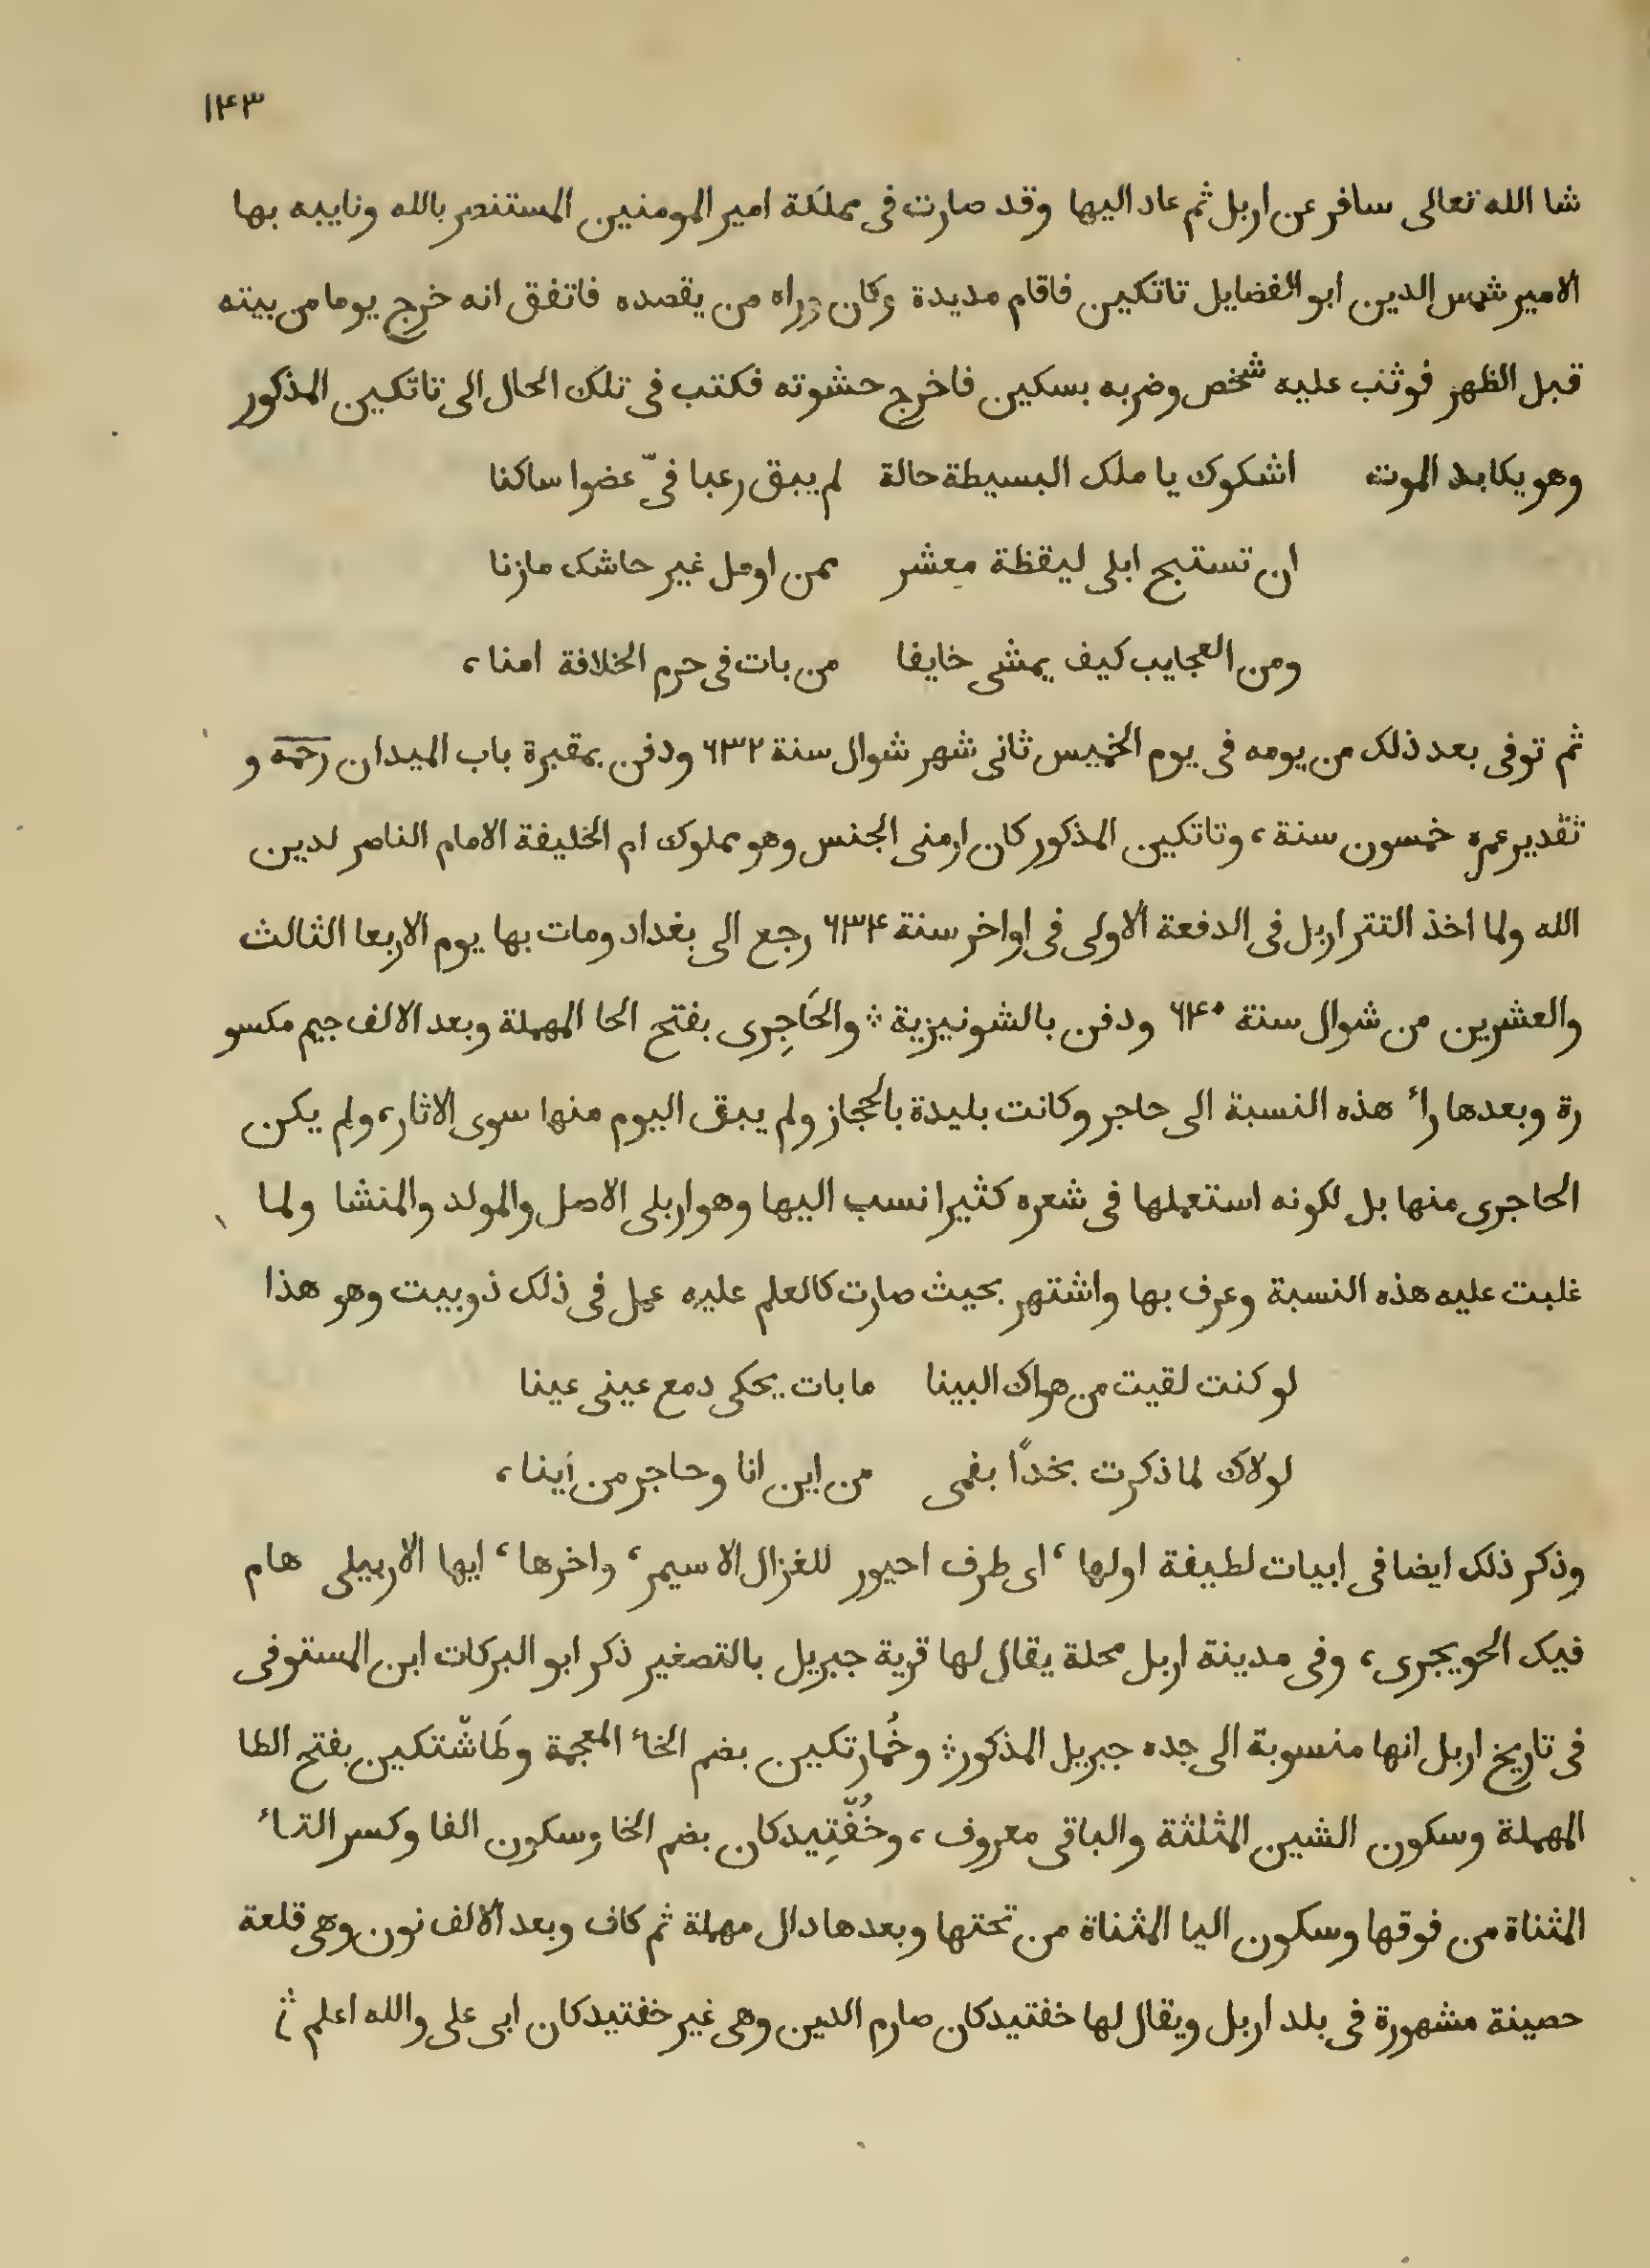 ١٤٣
شا الله تعالى سافر عن اربل ثم عاد اليها وقد صارت فى مملكة امير المومنين المستنصر بالله ونايبه بها
الامير شمس الدين ابو الفضايل تاتكين فاقام مديدة وكان وراه من يقصده فاتفق انه خرج يوما من بيته
قبل الظهر فوثب عليه شخص وضربه بسكين فاخرج حشوته فكتب فى تلك الحال الى تاتكين المذكور
وهو يكابد الموت اشكوك يا ملك البسيطة حالة لم يبق رعبا فىّ عضوا ساكنا
ان تستبح ابلى ليقظة معشر ممن اومل غير حاشك مازنا
ومن العجايب كيف يمشى خايفا من بات فى حرم الخلافة امنا،
ثم توفى بعد ذلك من يومه فى يوم الخميس ثانى شهر شوال سنة ٦٣٢ ودفن بمقبرة باب الميدان رحمه و
تقدير عمره خمسون سنة، وتاتكين المذكور كان ارمنى الجنس وهو مملوك ام الخليفة الامام الناصر لدين
الله ولما اخذ التتر اربل فى الدفعة الاولى فى اواخر سنة ٦٣٤ رجع الى بغداد ومات بها يوم الاربعا الثالث
والعشرين من شوال سنة ٦٤٠ ودفن بالشونيزية ؞ والحَاجِرى بفتح الحا المهملة وبعد الالف جيم مكسو
رة وبعدها راٴ هذه النسبة الى حاجر وكانت بليدة بالحجاز ولم يبق اليوم منها سوى الاثار، ولم يكن
الحاجرى منها بل لكونه استعملها فى شعره كثيرا نسب اليها وهو اربلى الاصل والمولد والمنشا ولما
غلبت عليه هذه النسبة وعرف بها واشتهر بحيث صارت كالعلم عليه عمل فى ذلك ذوبيت وهو هذا
لو كنت لقيت من هواك البينا ما بات يحكى دمع عينى عينا
لولاك لما ذكرت بخدًا بفمى من اين انا وحاجر من اَينا،
وذكر ذلك ايضا فى ابيات لطيفة اولها، اى طرف احيور للغزال الاسيمر، واخرها، ايها الاربيلى هام
فيك الحويجرى، وفى مدينة اربل محلة يقال لها قرية جبريل بالتصغير ذكر ابو البركات ابن المستوفى
فى تاريخ اربل انها منسوبة الى جده جبريل المذكور ؞ وخُمارتكين بضم الخاٴ المعجمة وطَاشْتكين بفتح الطا
المهملة وسكون الشين المثلثة والباقى معروف، وخُفْتِيدكان بضم الخا وسكون الفا وكسر التاٴ
المثناة من فوقها وسكون اليا المثناة من تحتها وبعدها دال مهملة ثم كاف وبعد الالف نون وهى قلعة
حصينة مشهورة فى بلد اربل ويقال لها خفتيدكان صارم الدين وهى غير خفتيدكان ابى على والله اعلم ؞